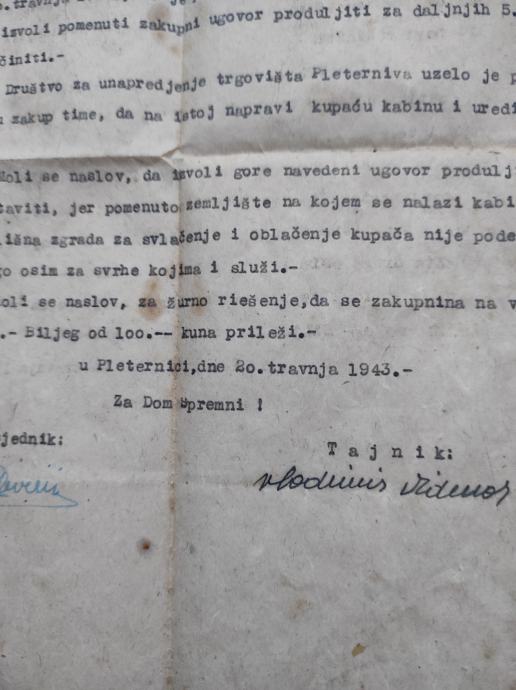 .travnja
izvoli pomenuti zakupni ugovor produljiti za daljnjih 5.
činiti.-
Društvo za unapredjenje trgovišta Pleterniva uzelo je p
u zakup time, da na istoj napravi kupaću kabinu i uredi
oli se naslov, da izvoli gore navedeni ugovor produlj
taviti, jer pomenuto zemljište na kojem se nalazi kabi
lišna zgrada za svlačenje i oblačenje kupača nije pode
o osim za svrhe kojima i služi.-
oli se naslov, za žurno riešenje,da se zakupnina na v
.- Biljeg od 100.-- kuna prileži.-
u Pleternici,dne 20.travnja 1943.-
Za Dom spremni !
jednik:
T a j n i k:
Vladimir